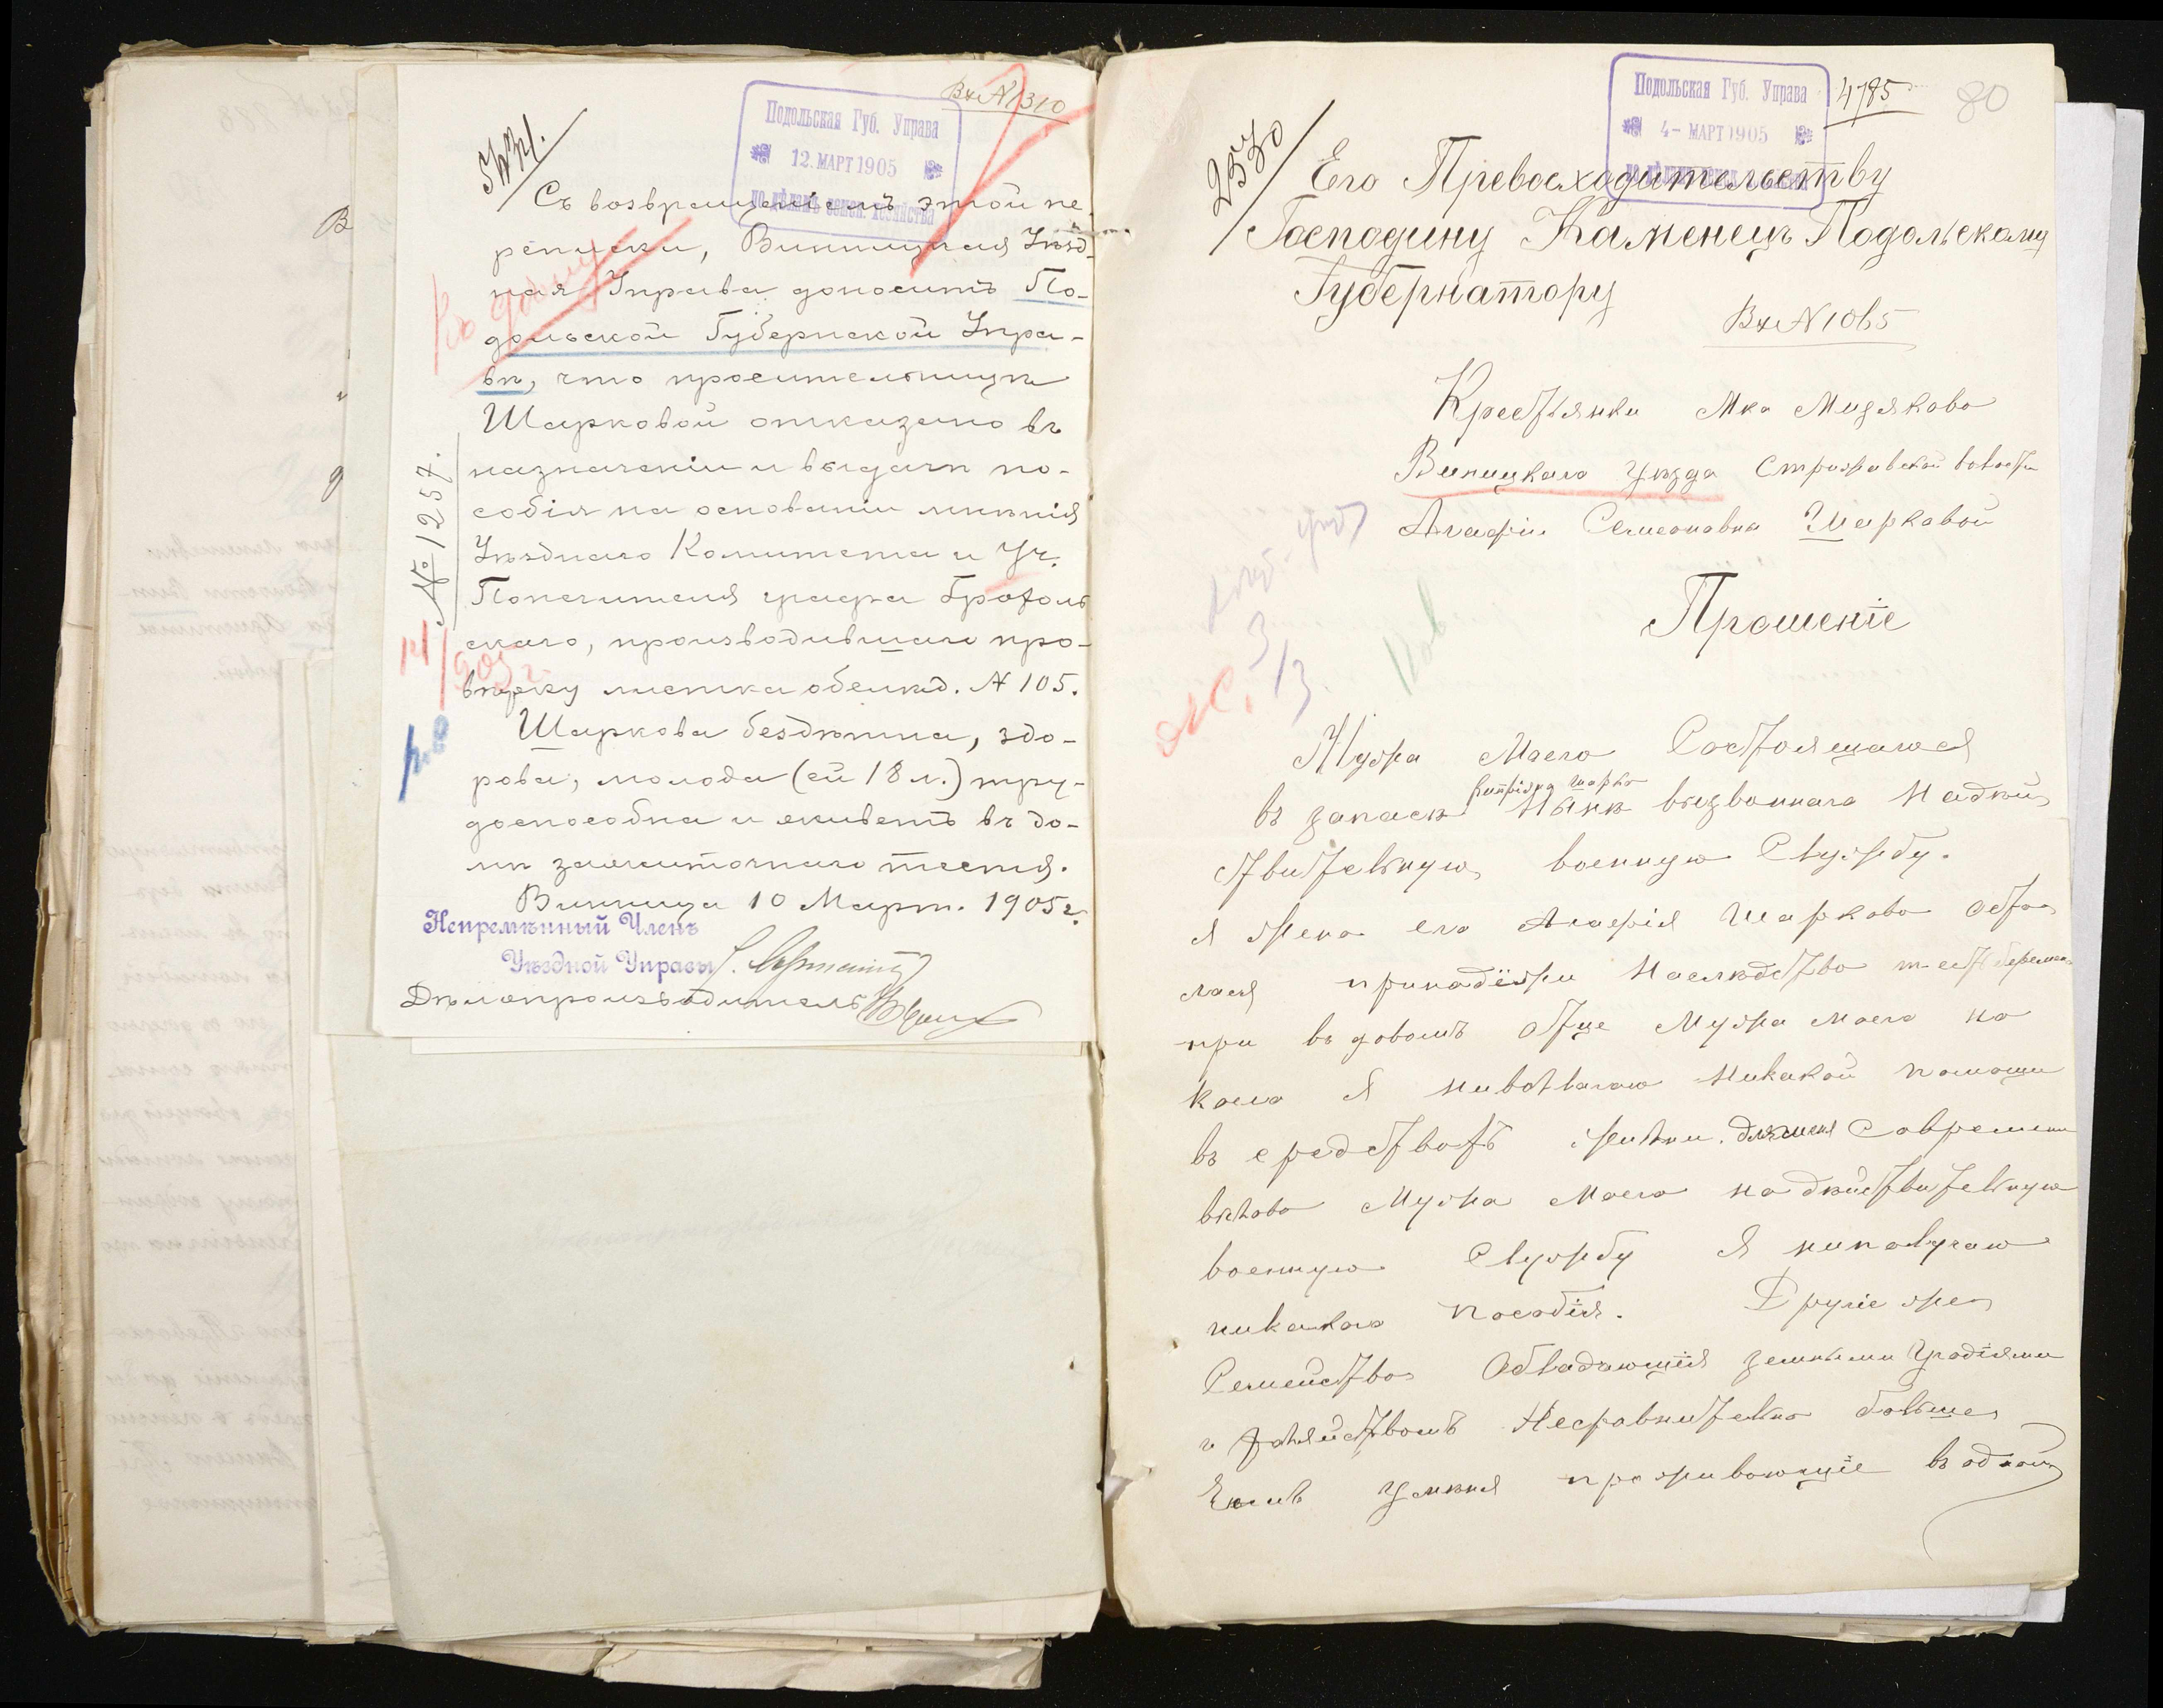 Вх N 1310
Подольская Губ. Управа
12. МАРТ 1905
Съ возвращеніемъ этой пе-
реписки, Винницкая Уѣзд-
ная Управа доноситъ По-
дольской Губернской Упра-
вѣ, что просительницѣ
Шарковой отказано въ
назначеніи и выдачѣ по-
собія на основаніи мнѣнія
Уѣзднаго Комитета и Уч.
Попечителя графа Грохоль
скаго, производившаго про-
вѣрку листка обслѣд. N 105.
Шаркова бездѣтна, здо-
рова, молода (ей 18 л.) тру-
доспособна и живетъ въ до-
мѣ зажиточнаго тестя.
Винница 10 Март. 1905 г.
Непремѣнный Членъ
Уѣздной Управы
Дѣлопроизводитель
№ 1257.
905 г.
Подольская Губ. Управа
4- МАРТ 1905
4785
80
2530
Его Превосходительству
Господину Каменецъ Подольскому
Губернатору
Вх N 1065
Крестьянки Мка Мизякова
Виницкаго Уѣзда Стрижавской волости
Агафіи Семеоновна Шарковой
Прошеніе
Мужа Маего Состоящагося
Кипріяна Шарко
въ запасѣ Нынѣ вызваннага Надѣй
ствительную военную Службу.
я Жена его Агафія Шаркова Оста
лася принадёжи Наслѣдство
при въдовомъ Отце Мужа моего На
кого Я Никакой помощи
въ средствахъ жизни. для меня Современи
вызова Мужа Моего на дѣйствительную
военную Службу Я ниполучаю
никакаго пособія. Другіе же
Семейства Обладающія земными Угодіями
и хозяйствомъ Несравнительно больше
проживающіе въ одной